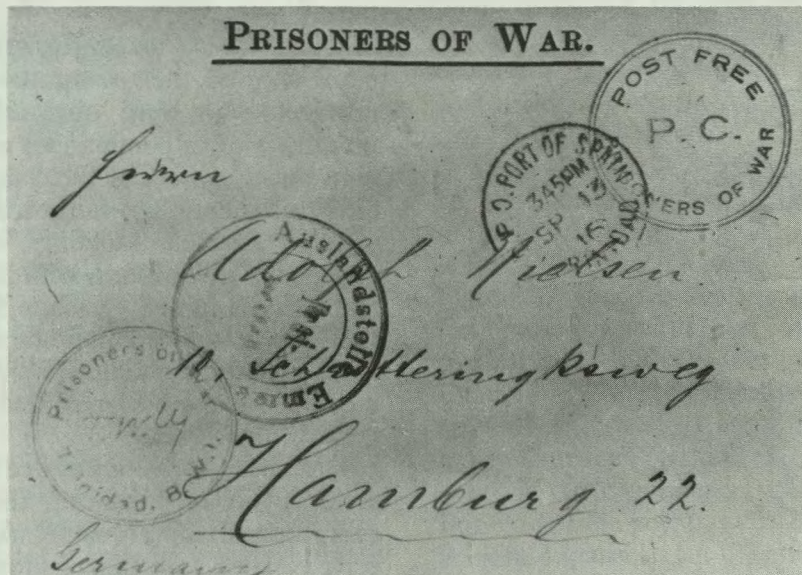 PRISONERS OF WAR.
POST FREE
P. C.
PRISONERS OF WAR
G. P. O. PORT OF SPAIN
3 45 PM
SP 16
TRINIDAD
Herrn
Adolph Nielsen.
Auslandstelle Emme
Frei.
10, Schotteringksweg
Prisoners of War
Trinidad, B. W. I.
Hamburg 22.
Germany